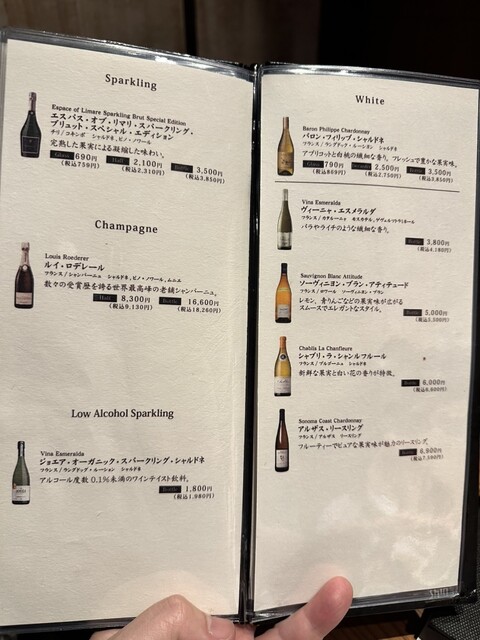 Sparkling
Espace of Limare Sparkling Brut Special Edition
エスパス・オブ・リマリ・スパークリング・
ブリュット・スペシャル・エディション
チリ／コキンボ シャルドネ、ピノ・ノワール
完熟した果実による凝縮した味わい。
Glass 690円 Half 2,100円 Bottle 3,500円
(税込759円) (税込2,310円) (税込3,850円)
Champagne
Louis Roederer
ルイ・ロデレール
フランス／シャンパーニュ シャルドネ、ピノ・ノワール、ムニエ
数々の受賞歴を誇る世界最高峰の老舗シャンパーニュ。
Half 8,300円 Bottle 16,600円
(税込9,130円) (税込18,260円)
Low Alcohol Sparkling
Vina Esmeralda
ジョエア・オーガニック・スパークリング・シャルドネ
フランス／ラングドック・ルーション シャルドネ
アルコール度数 0.1%未満のワインテイスト飲料。
Bottle 1,800円
(税込1,980円)
White
Baron Philippe Chardonnay
バロン・フィリップ・シャルドネ
フランス／ラングドック・ルーション シャルドネ
アプリコットと白桃の繊細な香り。フレッシュで豊かな果実味。
Glass 790円 2,500円 Bottle 3,500円
(税込869円) (税込2,750円) (税込3,850円)
Vina Esmeralda
ヴィーニャ・エスメラルダ
バラやライチのような繊細な香り。
Bottle 3,800円
(税込4,180円)
Sauvignon Blanc Attitude
ソーヴィニヨン・ブラン・アティチュード
フランス／ロワール ソーヴィニヨン・ブラン
レモン、青りんごなどの果実味が広がる
スムースでエレガントなスタイル。
Bottle 5,000円
(税込5,500円)
Chablis La Chanfleure
シャブリ・ラ・シャンルフルール
フランス／ブルゴーニュ シャルドネ
新鮮な果実と白い花の香りが特徴。
Bottle 6,000円
(税込6,600円)
Sonoma Coast Chardonnay
アルザス・リースリング
フランス／アルザス リースリング
フルーティーでピュアな果実味が魅力のリースリング。
Bottle 6,900円
(税込7,590円)